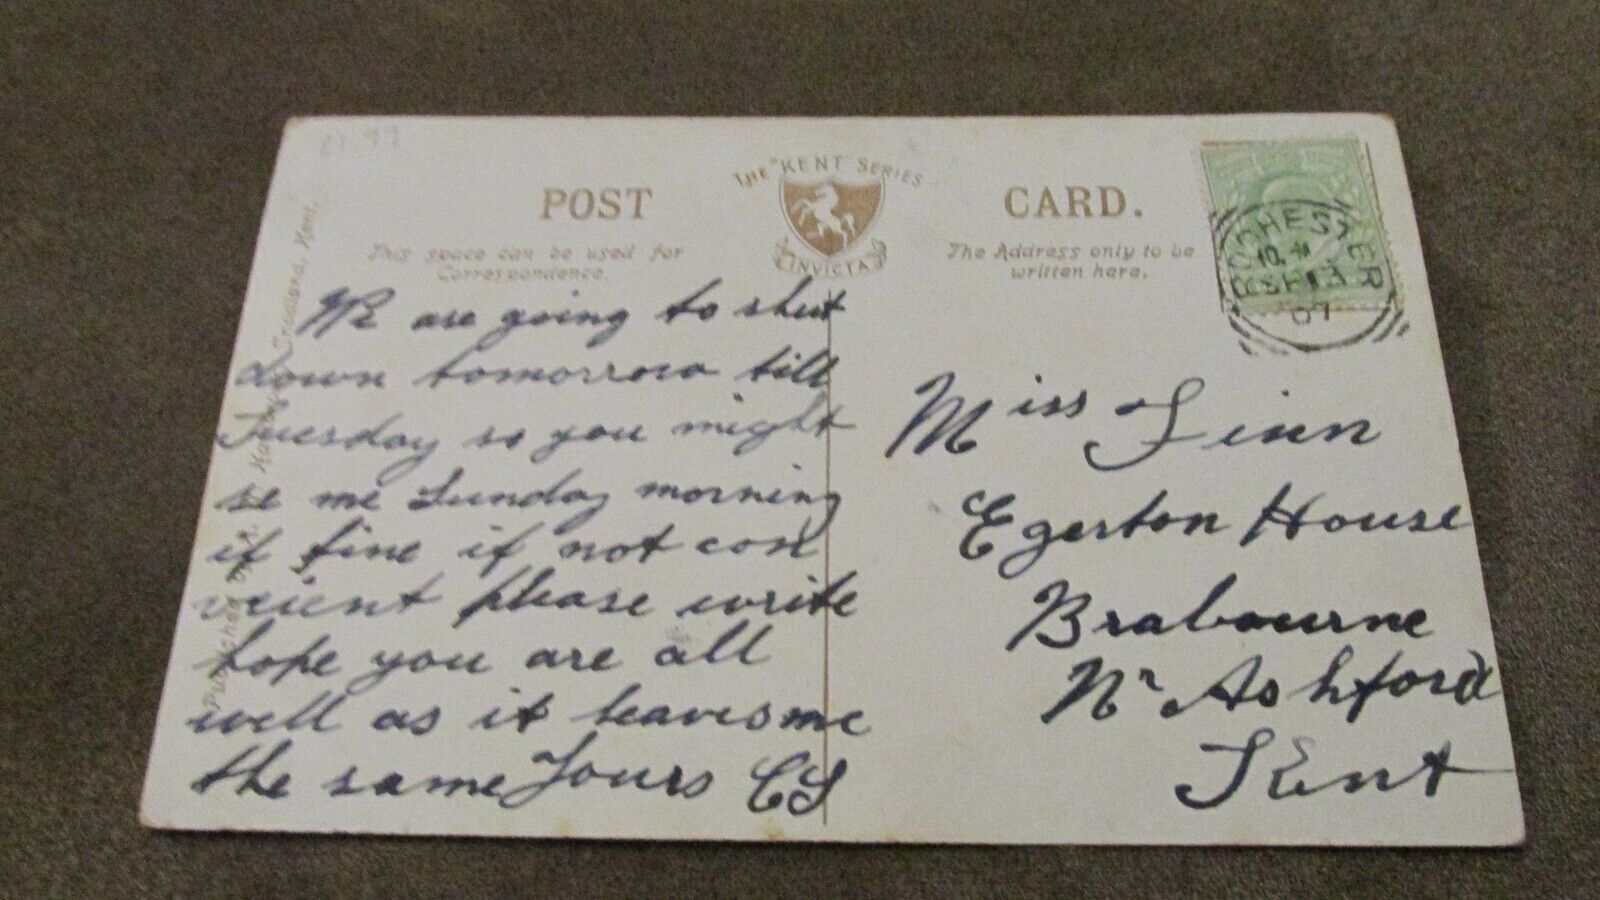 21.97
THE "KENT" SERIES
POST CARD.
INVICTA
This space can be used for
Correspondence.
The Address only to be
written here.
ROCHESTER
SP
07
We are going to shut
down tomorrow till
Tuesday so you might
se me Sunday morning
if fine if not con
veient please write
hope you are all
well as it leaves me
the same Yours
Miss Finn
Egerton House
Brabourne
Nr Ashford
Kent
Published by
Kent.